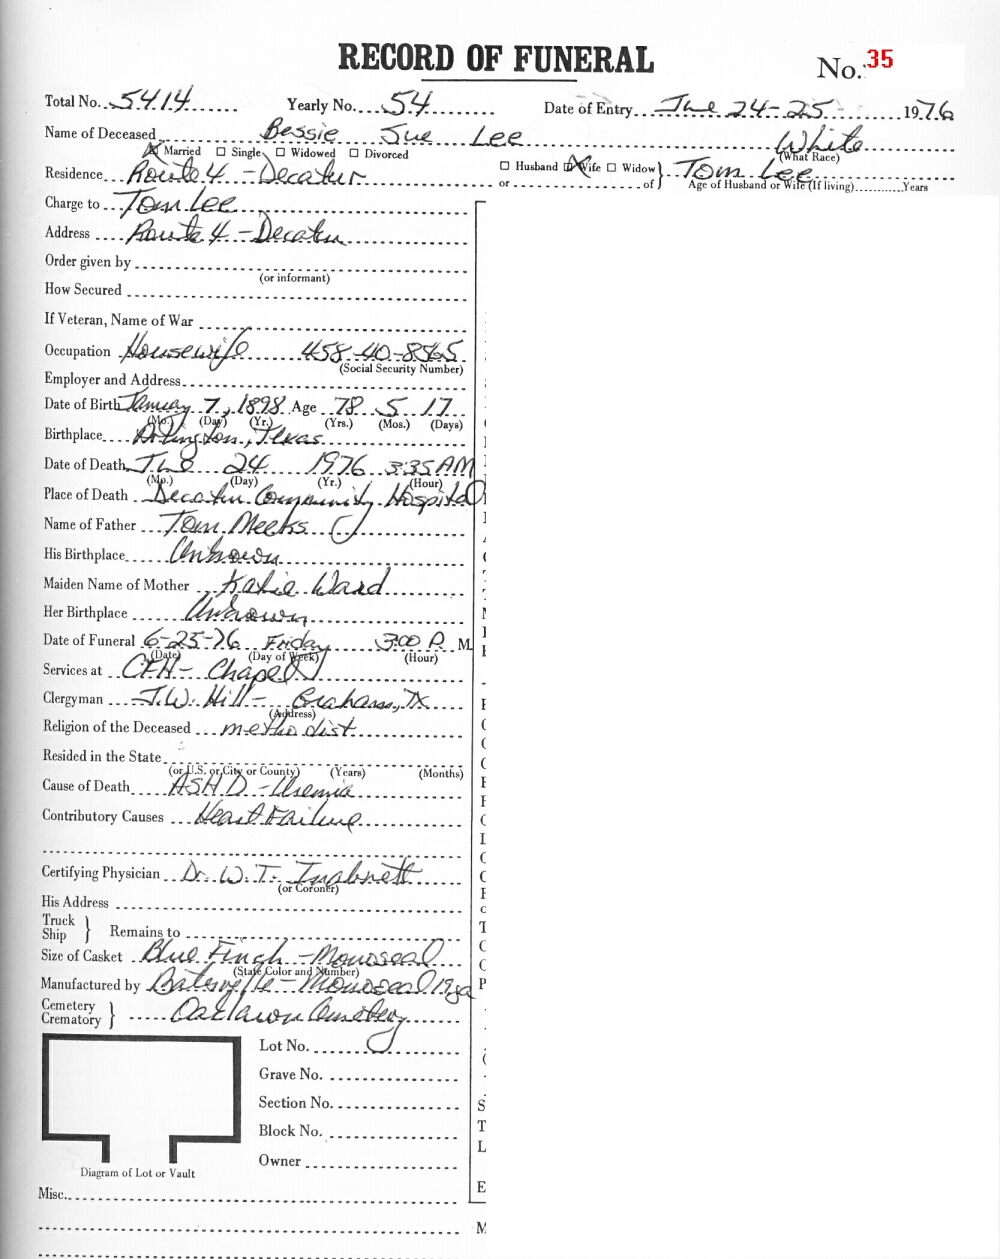 RECORD OF FUNERAL
No. 35
Total No. 5414 Yearly No. 54 Date of Entry June 24-25 1976
Name of Deceased Bessie Sue Lee White
(What Race)
☒ Married ☐ Single ☐ Widowed ☐ Divorced
Residence Route 4 - Decatur ☐ Husband ☒ Wife ☐ Widow } Tom Lee
or of } Age of Husband or Wife (If living) Years
Charge to Tom Lee
Address Route 4 - Decatur
Order given by
(or informant)
How Secured
If Veteran, Name of War
Occupation Housewife 458-40-8565
(Social Security Number)
Employer and Address
Date of Birth January 7, 1898 Age 78 5 17
(Mo.) (Day) (Yr.) (Yrs.) (Mos.) (Days)
Birthplace Arlington, Texas
Date of Death June 24 1976 3:35 AM
(Mo.) (Day) (Yr.) (Hour)
Place of Death Decatur Community Hospital
Name of Father Tom Meeks
His Birthplace Unknown
Maiden Name of Mother Katie Ward
Her Birthplace Unknown
Date of Funeral 6-25-76 Friday 3:00 P. M.
(Date) (Day of Week) (Hour)
Services at CFH - Chapel
Clergyman J.W. Hill - Graham, TX
(Address)
Religion of the Deceased methodist
Resided in the State
(or U.S. or City or County) (Years) (Months)
Cause of Death ASHD - Uremia
Contributory Causes Heart Failure
Certifying Physician Dr. W. T. Inabnett
(or Coroner)
His Address
Truck
Ship } Remains to
Size of Casket Blue Finch - Monoseal
(State Color and Number)
Manufactured by Batesville - Monoseal
Cemetery
Crematory } Oaklawn Cemetery
Lot No.
Grave No.
Section No.
Block No.
Owner
Diagram of Lot or Vault
Misc.